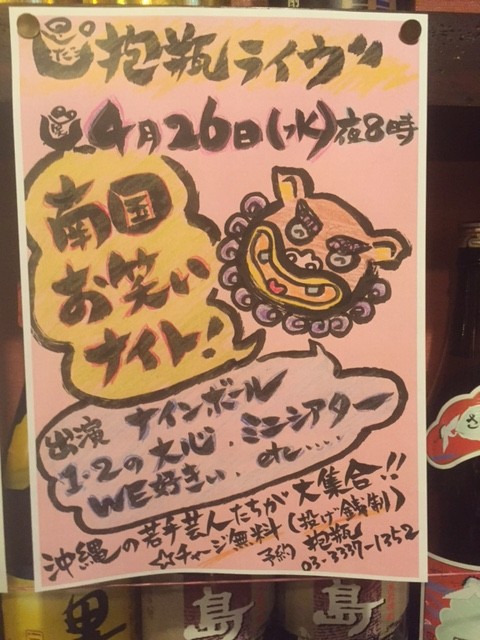 抱瓶ライヴ
4月26日(水)夜8時
南国
お笑い
ナイト!
出演 ナインボール
1・2の大心・ミニシアター
WE好きぃ. etc.....
沖縄の若手芸人たちが大集合!!
☆チャージ無料(投げ銭制)
予約 抱瓶
03-3337-1352
さ
島
島